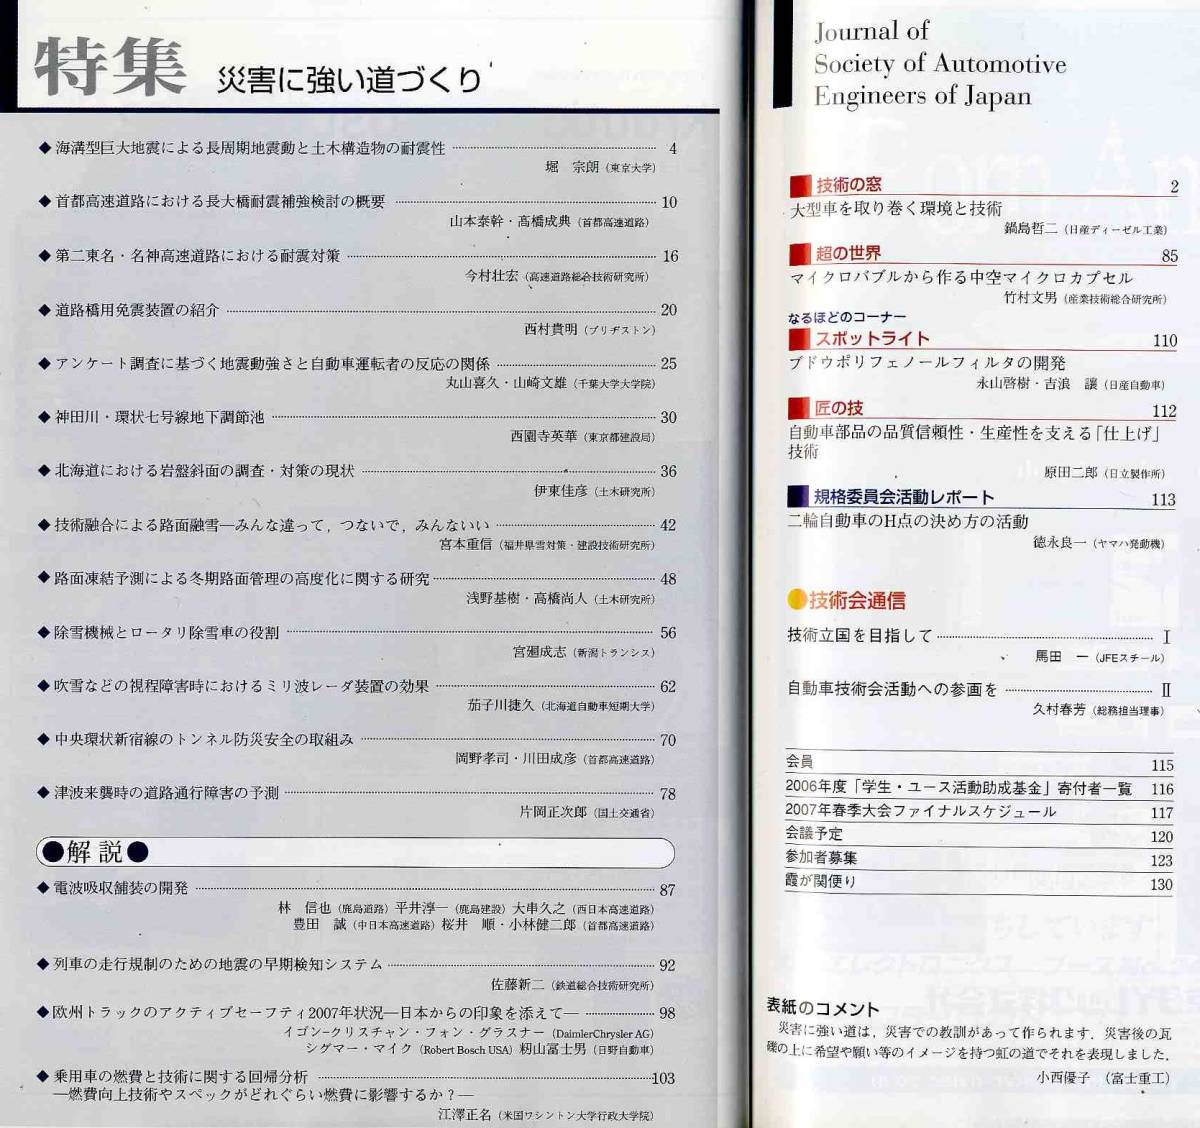 特集 災害に強い道づくり
◆海溝型巨大地震による長周期地震動と土木構造物の耐震性 4
堀 宗朗（東京大学）
◆首都高速道路における長大橋耐震補強検討の概要 10
山本泰幹・高橋成典（首都高速道路）
◆第二東名・名神高速道路における耐震対策 16
今村壮宏（高速道路総合技術研究所）
◆道路橋用免震装置の紹介 20
西村貴明（ブリヂストン）
◆アンケート調査に基づく地震動強さと自動車運転者の反応の関係 25
丸山喜久・山崎文雄（千葉大学大学院）
◆神田川・環状七号線地下調節池 30
西園寺英華（東京都建設局）
◆北海道における岩盤斜面の調査・対策の現状 36
伊東佳彦（土木研究所）
◆技術融合による路面融雪―みんな違って，つないで，みんないい 42
宮本重信（福井県雪対策・建設技術研究所）
◆路面凍結予測による冬期路面管理の高度化に関する研究 48
浅野基樹・高橋尚人（土木研究所）
◆除雪機械とロータリ除雪車の役割 56
宮廻成志（新潟トランシス）
◆吹雪などの視程障害時におけるミリ波レーダ装置の効果 62
茄子川捷久（北海道自動車短期大学）
◆中央環状新宿線のトンネル防災安全の取組み 70
岡野孝司・川田成彦（首都高速道路）
◆津波来襲時の道路通行障害の予測 78
片岡正次郎（国土交通省）
●解説●
◆電波吸収舗装の開発 87
林 信也（鹿島道路）平井淳一（鹿島建設）大串久之（西日本高速道路）
豊田 誠（中日本高速道路）桜井 順・小林健二郎（首都高速道路）
◆列車の走行規制のための地震の早期検知システム 92
佐藤新二（鉄道総合技術研究所）
◆欧州トラックのアクティブセーフティ2007年状況―日本からの印象を添えて― 98
イゴン-クリスチャン・フォン・グラスナー（DaimlerChrysler AG）
シグマー・マイク（Robert Bosch USA）籾山冨士男（日野自動車）
◆乗用車の燃費と技術に関する回帰分析 103
―燃費向上技術やスペックがどれぐらい燃費に影響するか？―
江澤正名（米国ワシントン大学行政大学院）
Journal of
Society of Automotive
Engineers of Japan
技術の窓 2
大型車を取り巻く環境と技術
鍋島哲二（日産ディーゼル工業）
超の世界 85
マイクロバブルから作る中空マイクロカプセル
竹村文男（産業技術総合研究所）
なるほどのコーナー
スポットライト 110
ブドウポリフェノールフィルタの開発
永山啓樹・吉浪 譲（日産自動車）
匠の技 112
自動車部品の品質信頼性・生産性を支える「仕上げ」
技術
原田二郎（日立製作所）
規格委員会活動レポート 113
二輪自動車のH点の決め方の活動
徳永良一（ヤマハ発動機）
●技術会通信
技術立国を目指して I
馬田 一（JFEスチール）
自動車技術会活動への参画を II
久村春芳（総務担当理事）
会員 115
2006年度「学生・ユース活動助成基金」寄付者一覧 116
2007年春季大会ファイナルスケジュール 117
会議予定 120
参加者募集 123
霞が関便り 130
表紙のコメント
災害に強い道は，災害での教訓があって作られます．災害後の瓦
礫の上に希望や願い等のイメージを持つ虹の道でそれを表現しました．
小西優子（富士重工）